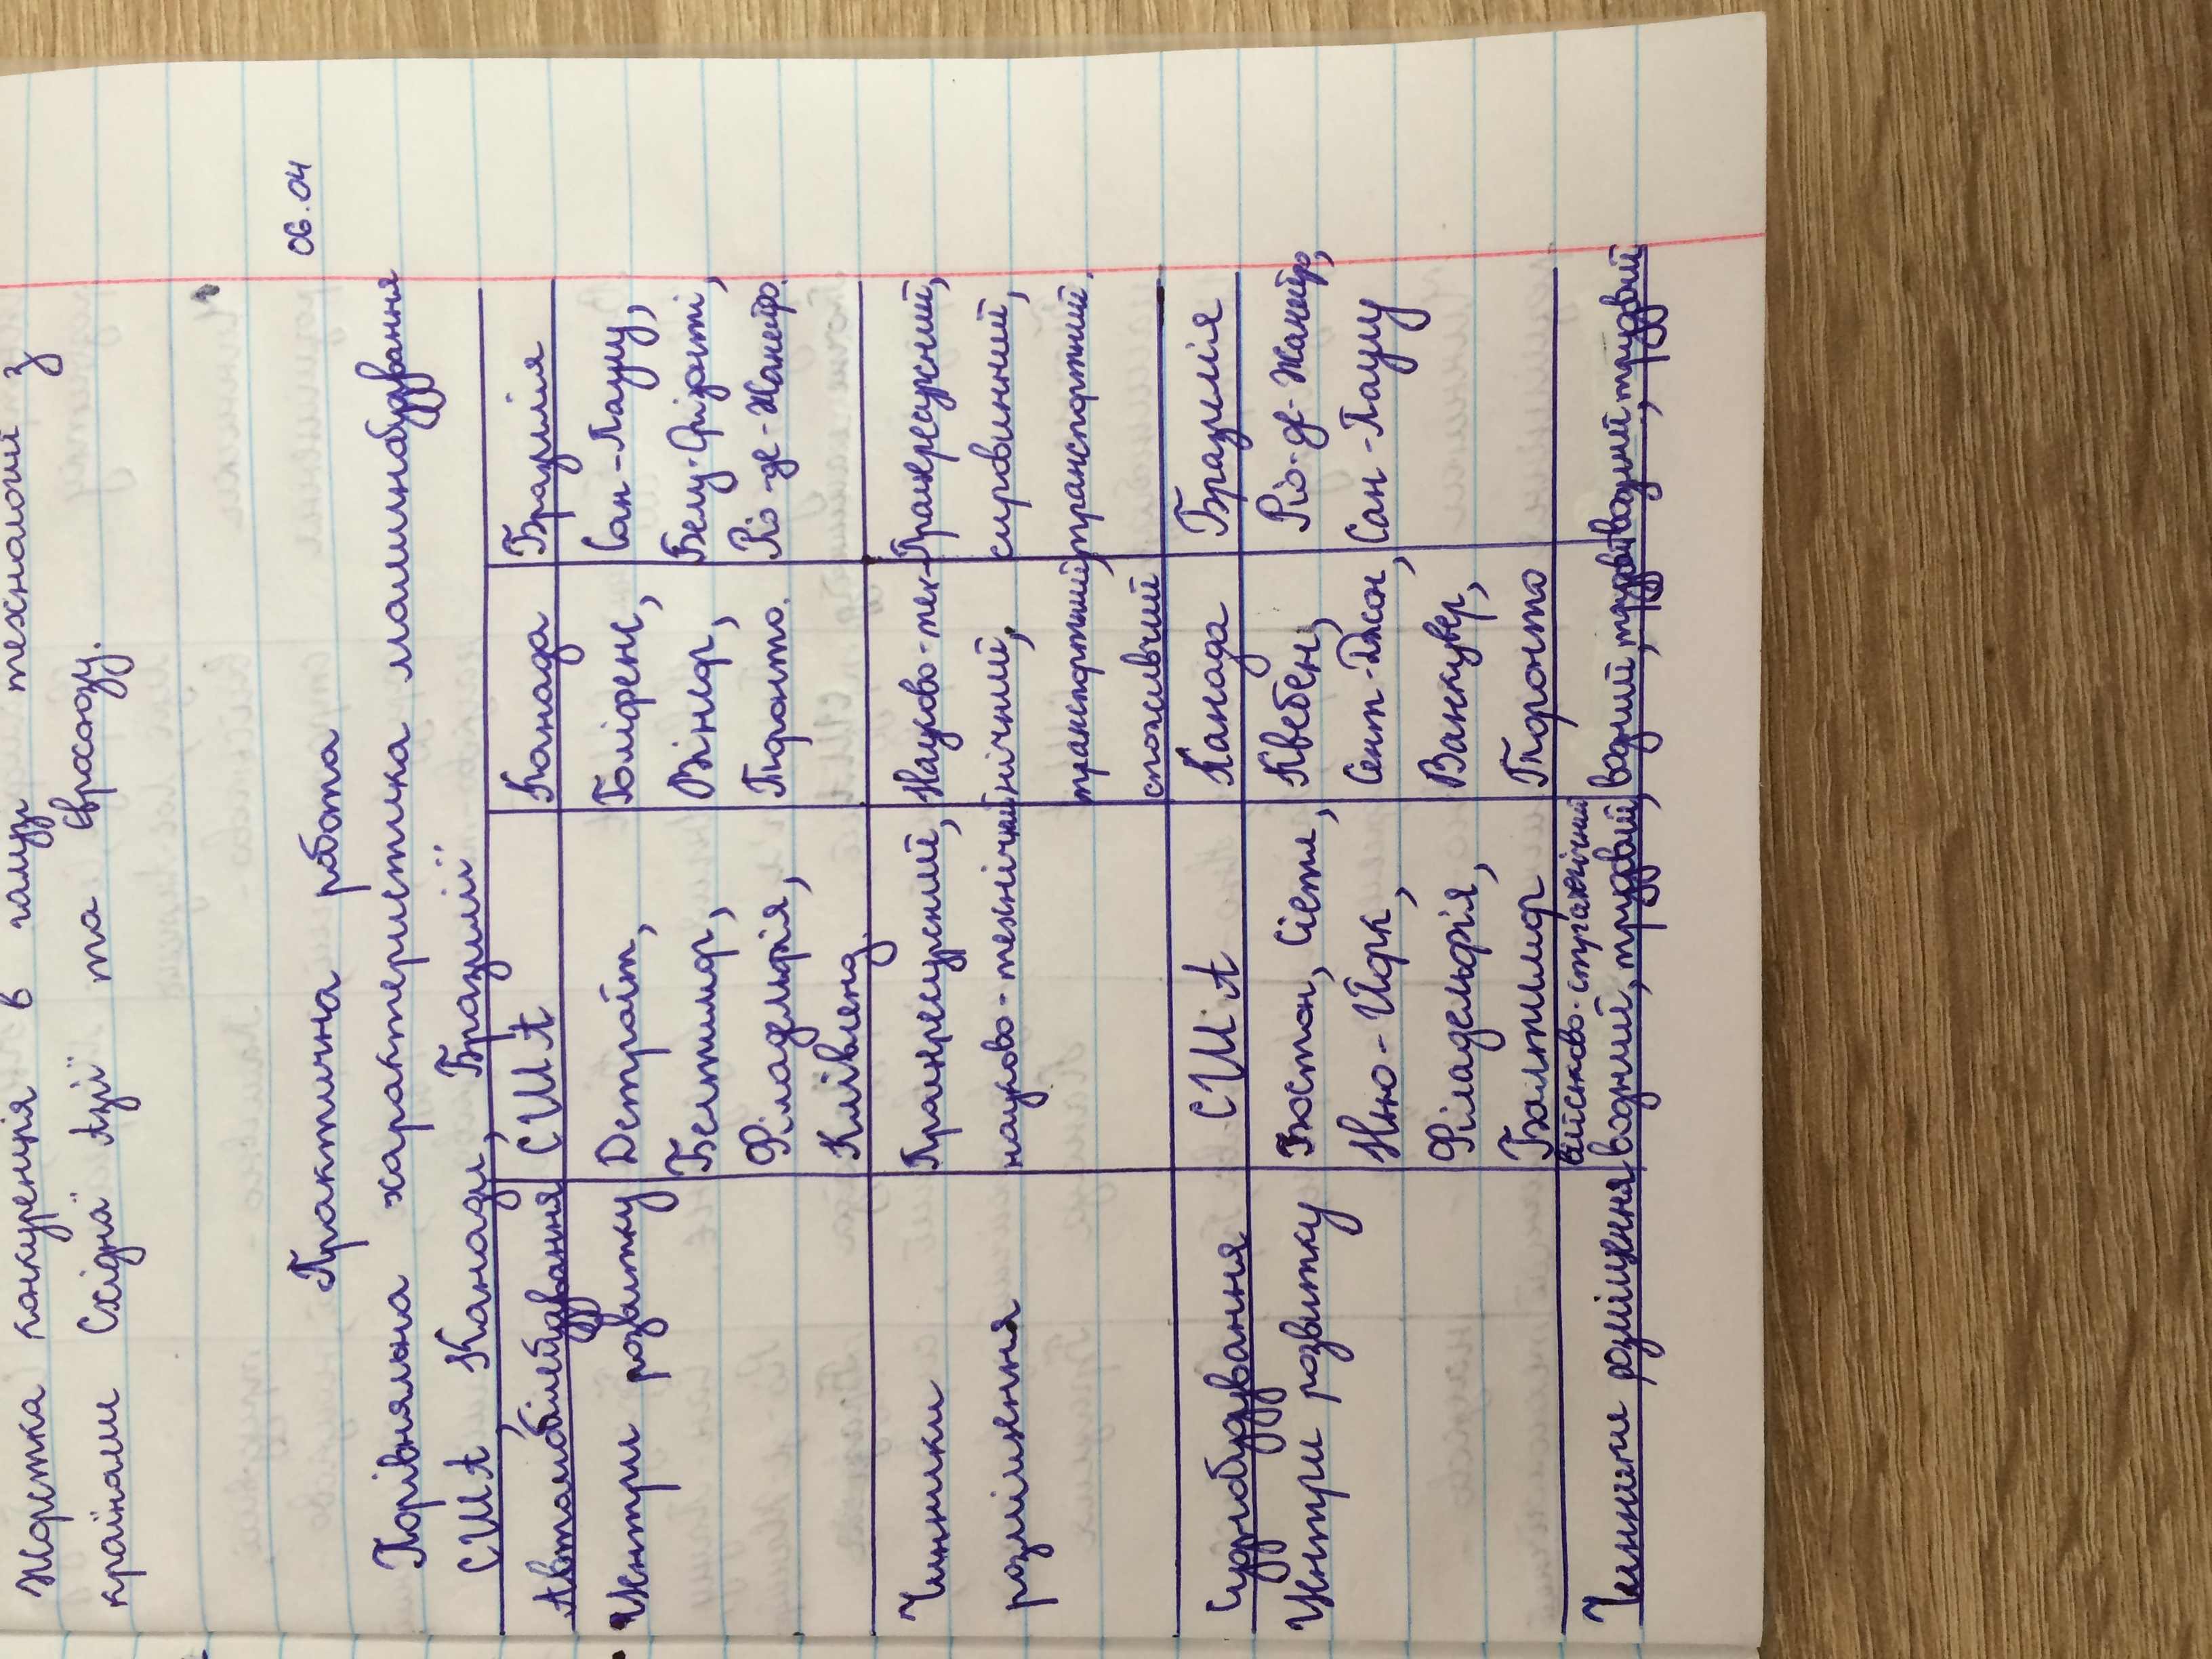 Жорстка конкуренція в галузі технологій з
країнами Східної Азії та Євросоюзу.
06.04
Практична робота
Порівняльна характеристика машинобудування
США, Канади, Бразилії
Автомобілебудування США Канада Бразилія
Центри розвитку Детройт, Галіфекс, Сан-Паулу,
Белтимор, Віндзор, Белу-Орізонті,
Філадельфія, Торонто. Ріо-де-Жанейро.
Клівленд.
Чинники Працересурсний, Науково-тех- Працересурсний,
розміщення науково-технічний нічний, сировинний,
транспортний, транспортний.
споживчий
Суднобудування США Канада Бразилія
Центри розвитку Бостон, Сіетл, Квебек, Ріо-де-Жанейро,
Нью-Йорк, Сент-Джон, Сан-Паулу
Філадельфія, Ванкувер,
Балтимор Торонто
військово-стратегічний
Чинники розміщення водний, трудовий, водний, трудовий водний, трудовий